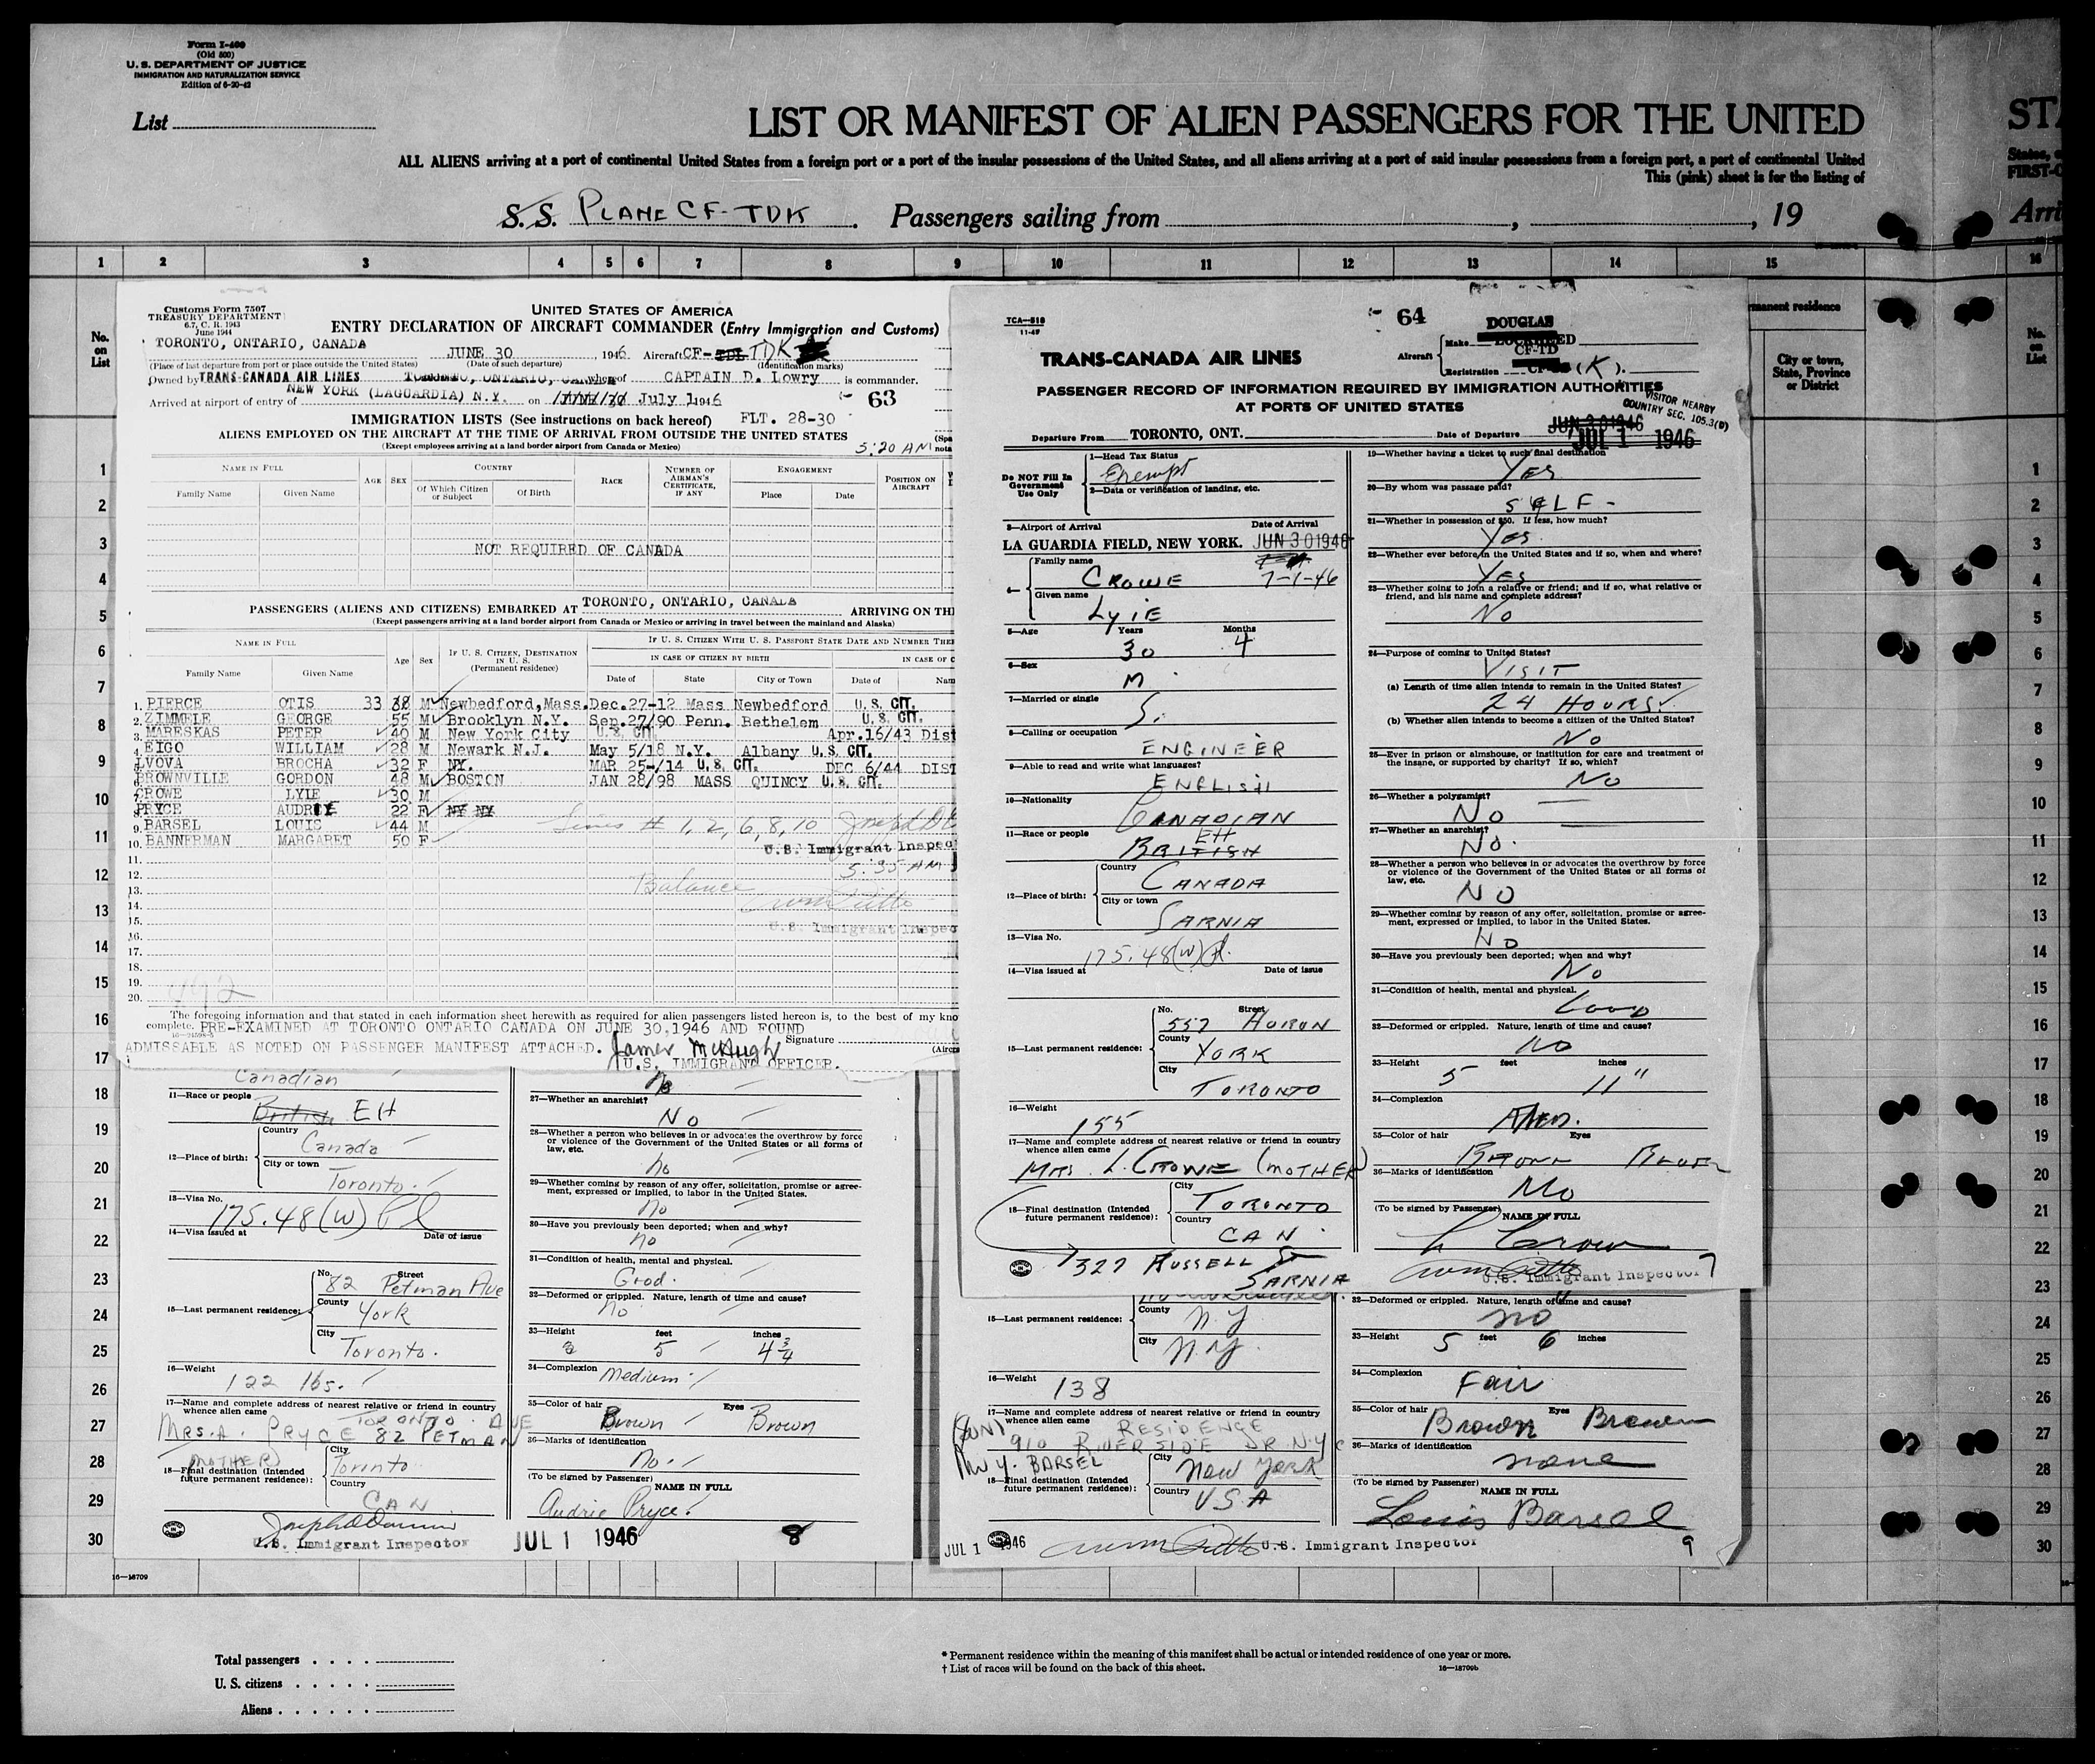 Form I-400
(Old 500)
U. S. DEPARTMENT OF JUSTICE
IMMIGRATION AND NATURALIZATION SERVICE
Edition of 6-20-42
List
LIST OR MANIFEST OF ALIEN PASSENGERS FOR THE UNITED
ALL ALIENS arriving at a port of continental United States from a foreign port or a port of the insular possessions of the United States, and all aliens arriving at a port of said insular possessions from a foreign port, a port of continental United
This (pink) sheet is for the listing of
S.S. PLANE CF-TDK. Passengers sailing from , , 19
STA
States, o
FIRST-C
Arri
1 2 3 4 5 6 7 8 9 10 11 12 13 14 15 16
No. on List
Customs Form 7507
TREASURY DEPARTMENT
6.7, C. R. 1943
June 1944
UNITED STATES OF AMERICA
ENTRY DECLARATION OF AIRCRAFT COMMANDER (Entry Immigration and Customs)
TORONTO, ONTARIO, CANADA JUNE 30, 1946 Aircraft CF- TDK
(Place of last departure from port or place outside the United States) (Date of such departure) (Identification marks)
Owned by TRANS-CANADA AIR LINES TORONTO, ONTARIO, CANADA whereof CAPTAIN D. Lowry is commander.
Arrived at airport of entry of NEW YORK (LAGUARDIA) N.Y. on July 1, 1946
63
IMMIGRATION LISTS (See instructions on back hereof) FLT. 28-30
ALIENS EMPLOYED ON THE AIRCRAFT AT THE TIME OF ARRIVAL FROM OUTSIDE THE UNITED STATES
(Except employees arriving at a land border airport from Canada or Mexico) 5:20 AM
NAME IN FULL AGE SEX COUNTRY RACE NUMBER OF AIRMAN'S CERTIFICATE, IF ANY ENGAGEMENT POSITION ON AIRCRAFT
Family Name Given Name Of Which Citizen or Subject Of Birth Place Date
NOT REQUIRED OF CANADA
PASSENGERS (ALIENS AND CITIZENS) EMBARKED AT TORONTO, ONTARIO, CANADA ARRIVING ON THI
(Except passengers arriving at a land border airport from Canada or Mexico or arriving in travel between the mainland and Alaska)
NAME IN FULL Age Sex IF U. S. CITIZEN, DESTINATION IN U. S. (Permanent residence) IF U. S. CITIZEN WITH U. S. PASSPORT STATE DATE AND NUMBER THE
IN CASE OF CITIZEN BY BIRTH IN CASE OF C
Family Name Given Name Date of State City or Town Date of Nam
1. PIERCE OTIS 33 38 M Newbedford, Mass. Dec. 27-12 Mass Newbedford U.S. CIT.
2. ZIMMELE GEORGE 55 M Brooklyn N.Y. Sep. 27/90 Penn. Bethelem U.S. CIT.
3. MARESKAS PETER 40 M New York City U.S. CIT Apr.16/43 Dist
4. EIGO WILLIAM 28 M Newark N.J. May 5/18 N.Y. Albany U.S. CIT.
5. LVOVA BROCHA 32 F NY. MAR 25-/14 U.S. CIT. DEC. 6/44 DIST
6. BROWNVILLE GORDON 48 M BOSTON JAN 28/98 MASS QUINCY U.S. CIT.
7. CROWE LYIE 30 M
8. PRYCE AUDRIE 22 F NY NY
9. BARSEL LOUIS 44 M Lines # 1, 2, 6, 8, 10
10. BANNERMAN MARGARET 50 F U.S. Immigrant Inspec
11.
12. 5:35 AM
13. Balance
14.
15.
16. U.S. Immigrant Inspec
17.
18.
19.
20.
492
The foregoing information and that stated in each information sheet herewith as required for alien passengers listed hereon is, to the best of my kno
complete. PRE-EXAMINED AT TORONTO ONTARIO CANADA ON JUNE 30, 1946 AND FOUND
ADMISSABLE AS NOTED ON PASSENGER MANIFEST ATTACHED. James McHugh Signature
U.S. IMMIGRANT OFFICER. (Aircra
Canadian
11—Race or people
British EH
12—Place of birth:
Country
Canada
City or town
Toronto.
13—Visa No.
175.48(W) Pl
14—Visa issued at Date of issue
15—Last permanent residence:
No. Street
82 Petman Ave
County
York
City
Toronto.
16—Weight
122 lbs.
17—Name and complete address of nearest relative or friend in country whence alien came
TORONTO.
MRS. A. PRYCE 82 PETMAN AVE
(MOTHER)
18—Final destination (Intended future permanent residence):
City
Toronto
Country
CAN
U.S. Immigrant Inspector
No
27—Whether an anarchist?
No
28—Whether a person who believes in or advocates the overthrow by force or violence of the Government of the United States or all forms of law, etc.
no
29—Whether coming by reason of any offer, solicitation, promise or agreement, expressed or implied, to labor in the United States.
no
30—Have you previously been deported; when and why?
no
31—Condition of health, mental and physical.
Good.
32—Deformed or crippled. Nature, length of time and cause?
no
33—Height feet inches
5 4 3/4
34—Complexion
Medium
35—Color of hair Eyes
Brown Brown
36—Marks of identification
No.
(To be signed by Passenger)
NAME IN FULL
Audrie Pryce.
JUL 1 1946
8
TCA—518
11-47
64
TRANS-CANADA AIR LINES
Aircraft
Make DOUGLAS LOCKHEED
Registration CF-TD (K).
PASSENGER RECORD OF INFORMATION REQUIRED BY IMMIGRATION AUTHORITIES
AT PORTS OF UNITED STATES
VISITOR NEARBY
COUNTRY SEC. 105.3(B)
Departure From TORONTO, ONT. Date of Departure JUN 30 1946
JUL 1 1946
DO NOT Fill In Government Use Only
1—Head Tax Status
Exempt
2—Data or verification of landing, etc.
3—Airport of Arrival Date of Arrival
LA GUARDIA FIELD, NEW YORK. JUN 30 1946
7-1-46
4—
Family name
CROWE
Given name
LyiE
5—Age Years Months
30 4
6—Sex
M
7—Married or single
S.
8—Calling or occupation
ENGINEER
9—Able to read and write what languages?
ENGLISH
10—Nationality
CANADIAN
11—Race or people
EH
BRITISH
12—Place of birth:
Country
CANADA
City or town
SARNIA
13—Visa No.
175.48(W) Pl.
14—Visa issued at Date of issue
15—Last permanent residence:
No. Street
557 HURON
County
YORK
City
TORONTO
16—Weight
155
17—Name and complete address of nearest relative or friend in country whence alien came
MRS. L. CROWE (MOTHER)
18—Final destination (Intended future permanent residence):
City
TORONTO
Country
CAN
327 RUSSELL ST
SARNIA
19—Whether having a ticket to such final destination
YES
20—By whom was passage paid?
SELF-
21—Whether in possession of $50. If less, how much?
YES
22—Whether ever before in the United States and if so, when and where?
YES
23—Whether going to join a relative or friend; and if so, what relative or friend, and his name and complete address?
NO
24—Purpose of coming to United States?
VISIT
(a) Length of time alien intends to remain in the United States?
24 HOURS
(b) Whether alien intends to become a citizen of the United States?
NO
25—Ever in prison or almshouse, or institution for care and treatment of the insane, or supported by charity? If so, which?
NO
26—Whether a polygamist?
NO
27—Whether an anarchist?
NO.
28—Whether a person who believes in or advocates the overthrow by force or violence of the Government of the United States or all forms of law, etc.
NO
29—Whether coming by reason of any offer, solicitation, promise or agreement, expressed or implied, to labor in the United States.
NO
30—Have you previously been deported; when and why?
NO
31—Condition of health, mental and physical.
GOOD
32—Deformed or crippled. Nature, length of time and cause?
NO
33—Height feet inches
5 11"
34—Complexion
MED.
35—Color of hair Eyes
BROWN
36—Marks of identification
NO
(To be signed by Passenger) NAME IN FULL
L Crowe
U.S. Immigrant Inspector 7
15—Last permanent residence:
County
N.Y
City
N.Y.
16—Weight
138
17—Name and complete address of nearest relative or friend in country whence alien came
(SON) RESIDENCE
910 RIVERSIDE DR N.Y.C
BARSEL
18—Final destination (Intended future permanent residence):
City
New York
Country
USA
JUL 1 1946
U.S. Immigrant Inspector
32—Deformed or crippled. Nature, length of time and cause?
no
33—Height 5 feet 6 inches
34—Complexion
Fair
35—Color of hair Eyes
Brown Brown
36—Marks of identification
none
(To be signed by Passenger)
NAME IN FULL
Louis Barsel
9
rmanent residence
City or town, State, Province or District
No. on List
1
2
3
4
5
6
7
8
9
10
11
12
13
14
15
16
17
18
19
20
21
22
23
24
25
26
27
28
29
30
16—18709
Total passengers . . . .
U. S. citizens . . . . .
Aliens . . . . . .
* Permanent residence within the meaning of this manifest shall be actual or intended residence of one year or more.
† List of races will be found on the back of this sheet.
16—18709b